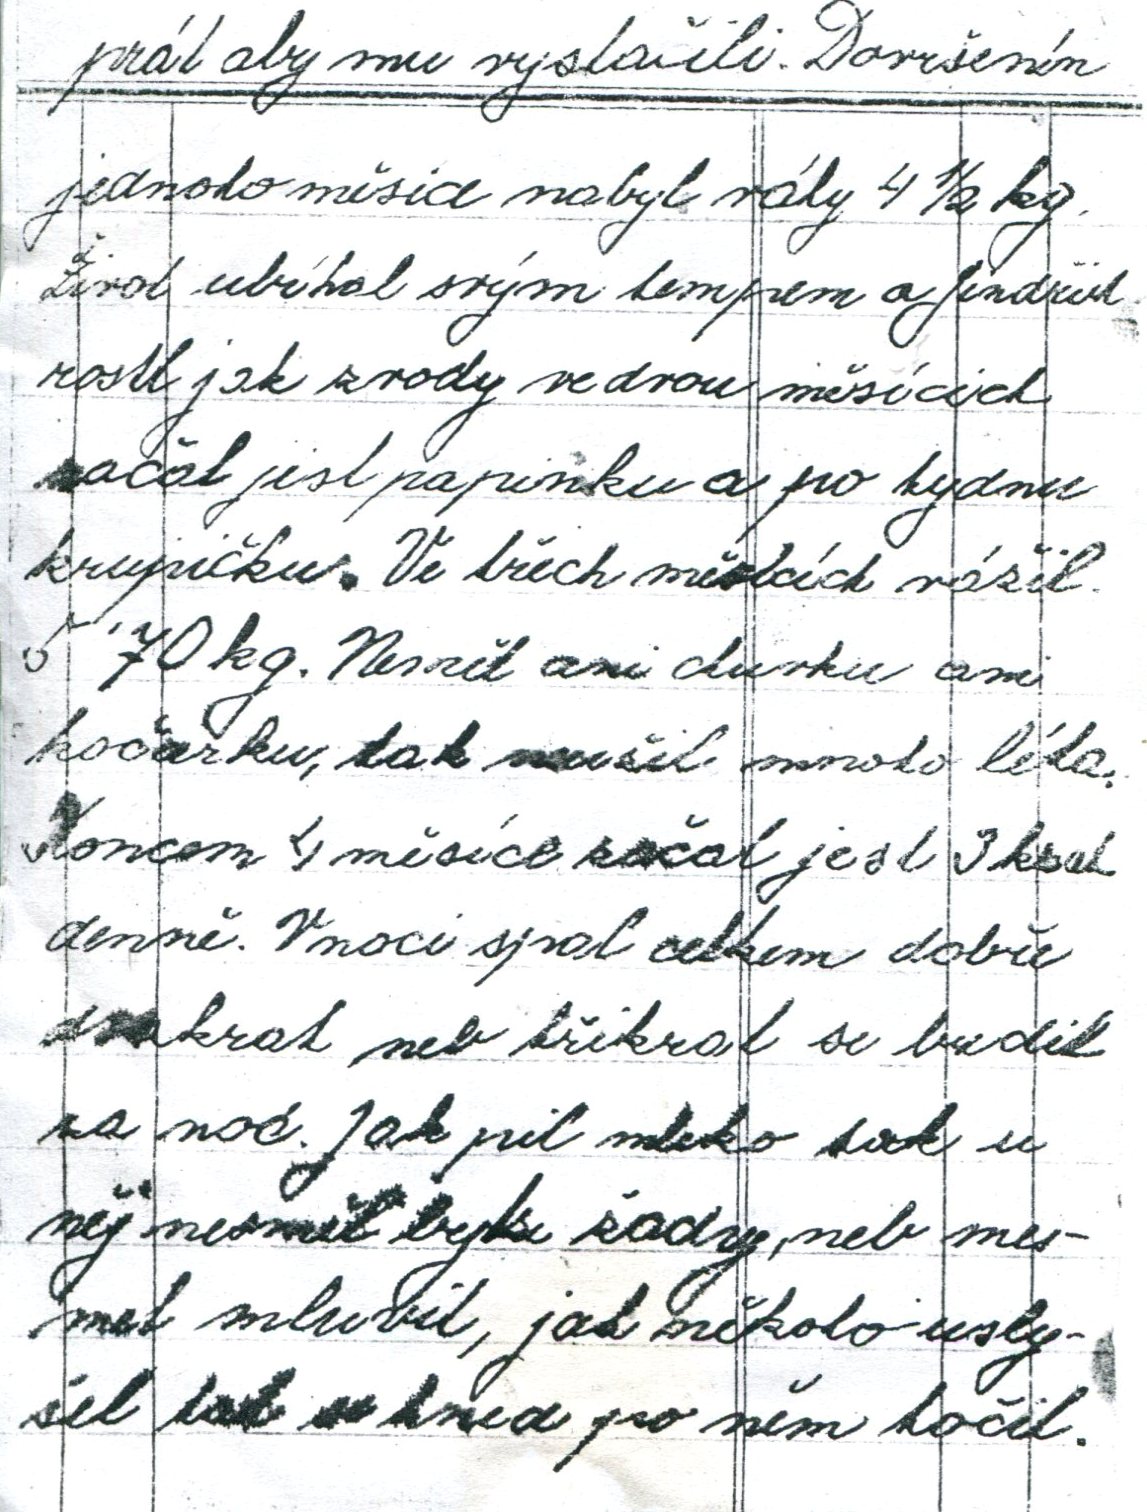 prát aby mu vystačili. Dovršením
jednoho měsíce nabyl váhy 4 1/2 kg.
Život ubíhal svým tempem a Jindřich
rostl jak z vody ve dvou měsících
začal jist papinku a po tydnu
krupičku. Ve třech měsících vážil
5 70 kg. Neměl ani dudku ani
kočárku, tak užil mnoho léta.
Koncem 4 měsíce začal jest 3 krat
denně. V noci spal celkem dobře
dvakrat neb třikrat se budil
za noc. Jak pil mleko tak u
něj nesměl byt žadny, neb nes-
měl mluvit, jak někoho usly-
šel tak se hned po něm točil.